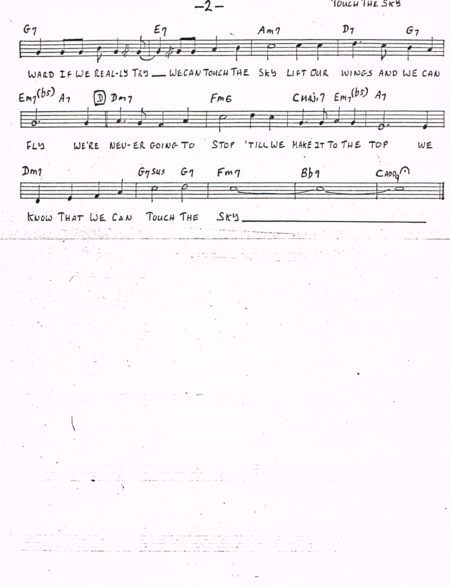 —2—
TOUCH THE SKY
G7 E7 Am7 D7 G7
WARD IF WE REAL-LY TRY — WE CAN TOUCH THE SKY LIFT OUR WINGS AND WE CAN
Em7(b5) A7 D Dm7 Fm6 CMAJ.7 Em7(b5) A7
FLY WE'RE NEV-ER GOING TO STOP 'TILL WE MAKE IT TO THE TOP WE
Dm7 G7sus G7 Fm7 Bb9 CADD9
KNOW THAT WE CAN TOUCH THE SKY